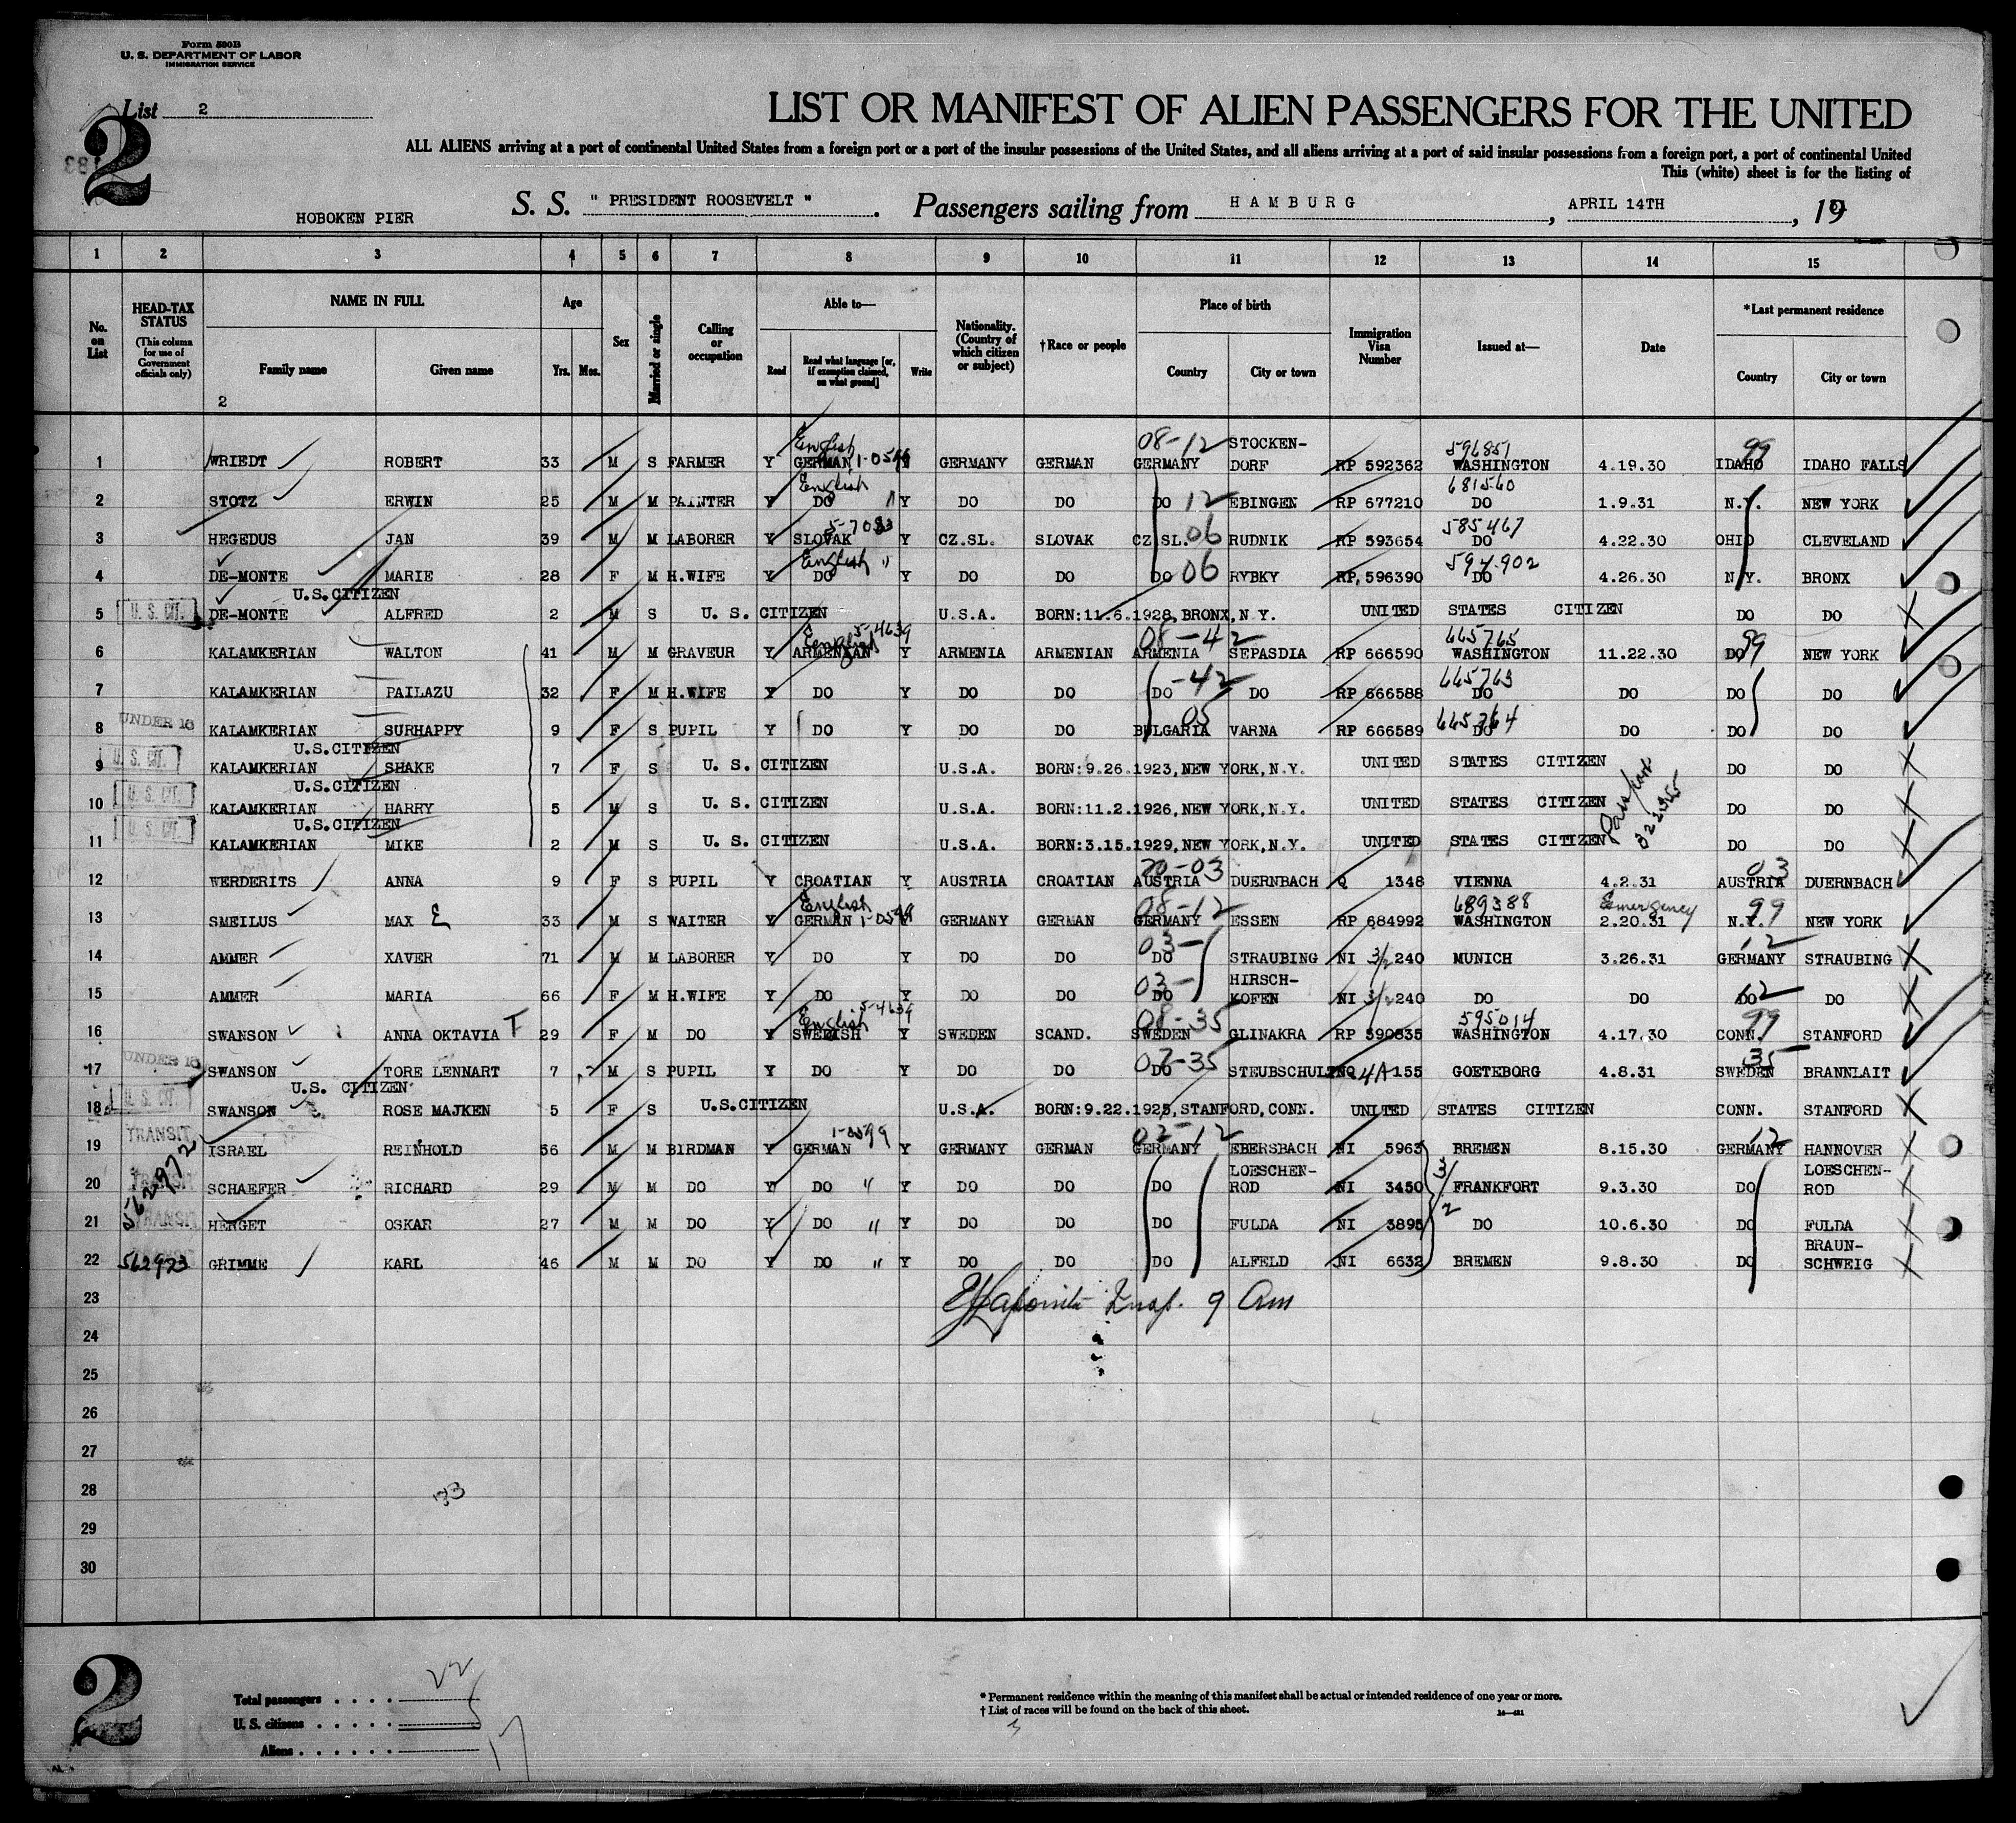 Form 500B
U. S. DEPARTMENT OF LABOR
IMMIGRATION SERVICE
List 2
2
LIST OR MANIFEST OF ALIEN PASSENGERS FOR THE UNITED
ALL ALIENS arriving at a port of continental United States from a foreign port or a port of the insular possessions of the United States, and all aliens arriving at a port of said insular possessions from a foreign port, a port of continental United
This (white) sheet is for the listing of
HOBOKEN PIER S. S. " PRESIDENT ROOSEVELT ". Passengers sailing from HAMBURG, APRIL 14TH, 19
1 2 3 4 5 6 7 8 9 10 11 12 13 14 15
No. on List
HEAD-TAX STATUS (This column for use of Government officials only)
NAME IN FULL Family name Given name
2
Age Yrs. Mos.
Sex
Married or single
Calling or occupation
Able to— Read Read what language [or, if exemption claimed, on what ground] Write
Nationality. (Country of which citizen or subject)
†Race or people
Place of birth Country City or town
Immigration Visa Number
Issued at—
Date
*Last permanent residence Country City or town
English 08-12 STOCKEN- 596851 99
1 WRIEDT ROBERT 33 M S FARMER Y GERMAN Y GERMANY GERMAN GERMANY DORF RP 592362 WASHINGTON 4.19.30 IDAHO IDAHO FALLS
English 681560
2 STOTZ ERWIN 25 M M PAINTER Y DO " Y DO DO DO 12 EBINGEN RP 677210 DO 1.9.31 N.Y. NEW YORK
585467
3 HEGEDUS JAN 39 M M LABORER Y SLOVAK Y CZ.SL. SLOVAK CZ.SL. 06 RUDNIK RP 593654 DO 4.22.30 OHIO CLEVELAND
English " 594902
4 DE-MONTE MARIE 28 F M H.WIFE Y DO Y DO DO DO 06 RYBKY RP 596390 DO 4.26.30 N.Y. BRONX
U.S.CITIZEN
5 U. S. CIT. DE-MONTE ALFRED 2 M S U. S. CITIZEN U.S.A. BORN:11.6.1928, BRONX, N.Y. UNITED STATES CITIZEN DO DO
English 5-4639 08-42 665765 99
6 KALAMKERIAN WALTON 41 M M GRAVEUR Y ARMENIAN Y ARMENIA ARMENIAN ARMENIA SEPASDIA RP 666590 WASHINGTON 11.22.30 DO NEW YORK
665763
7 KALAMKERIAN PAILAZU 32 F M H.WIFE Y DO Y DO DO DO -42 DO RP 666588 DO DO DO DO
UNDER 16 05 665764
8 KALAMKERIAN SURHAPPY 9 F S PUPIL Y DO Y DO DO BULGARIA VARNA RP 666589 DO DO DO DO
U.S.CITIZEN
9 U. S. CIT. KALAMKERIAN SHAKE 7 F S U. S. CITIZEN U.S.A. BORN:9.26.1923, NEW YORK, N.Y. UNITED STATES CITIZEN DO DO
U.S.CITIZEN
10 U. S. CIT. KALAMKERIAN HARRY 5 M S U. S. CITIZEN U.S.A. BORN:11.2.1926, NEW YORK, N.Y. UNITED STATES CITIZEN DO DO
Passport 322355
U.S.CITIZEN
11 U. S. CIT. KALAMKERIAN MIKE 2 M S U. S. CITIZEN U.S.A. BORN:3.15.1929, NEW YORK, N.Y. UNITED STATES CITIZEN DO DO
03
12 WERDERITS ANNA 9 F S PUPIL Y CROATIAN Y AUSTRIA CROATIAN AUSTRIA DUERNBACH Q 1348 VIENNA 4.2.31 AUSTRIA DUERNBACH
English 08-12 689388 Emergency 99
13 SMEILUS MAX E 33 M S WAITER Y GERMAN Y GERMANY GERMAN GERMANY ESSEN RP 684992 WASHINGTON 2.20.31 N.Y. NEW YORK
03- 12
14 AMMER XAVER 71 M M LABORER Y DO Y DO DO DO STRAUBING NI 3/2 240 MUNICH 3.26.31 GERMANY STRAUBING
03- HIRSCH- 12
15 AMMER MARIA 66 F M H.WIFE Y DO Y DO DO DO KOFEN NI 3/2 240 DO DO DO DO
English 5-4639 08-35 595014 99
16 SWANSON ANNA OKTAVIA T 29 F M DO Y SWEDISH Y SWEDEN SCAND. SWEDEN GLINAKRA RP 590835 WASHINGTON 4.17.30 CONN. STANFORD
UNDER 16 35
17 SWANSON TORE LENNART 7 M S PUPIL Y DO Y DO DO DO STEUBSCHULT NQ 4A 155 GOETEBORG 4.8.31 SWEDEN BRANNLAIT
U.S. CITIZEN
18 U. S. CIT. SWANSON ROSE MAJKEN 5 F S U.S.CITIZEN U.S.A. BORN:9.22.1925, STANFORD, CONN. UNITED STATES CITIZEN CONN. STANFORD
TRANSIT 1-0599 02-12 12
19 ISRAEL REINHOLD 56 M M BIRDMAN Y GERMAN Y GERMANY GERMAN GERMANY EBERSBACH NI 5963 BREMEN 8.15.30 GERMANY HANNOVER
TRANSIT 562972 LOESCHEN- 3/2 LOESCHEN-
20 SCHAEFER RICHARD 29 M M DO Y DO " Y DO DO DO ROD NI 3450 FRANKFORT 9.3.30 DO ROD
TRANSIT
21 HERGET OSKAR 27 M M DO Y DO " Y DO DO DO FULDA NI 3895 DO 10.6.30 DO FULDA
BRAUN-
22 562973 GRIMME KARL 46 M M DO Y DO " Y DO DO DO ALFELD NI 6632 BREMEN 9.8.30 DO SCHWEIG
23 Insp. 9 Am
24
25
26
27
28
29
30
2
Total passengers . . . . 22
U. S. citizens . . . . .
Aliens . . . . . . 17
* Permanent residence within the meaning of this manifest shall be actual or intended residence of one year or more.
† List of races will be found on the back of this sheet.